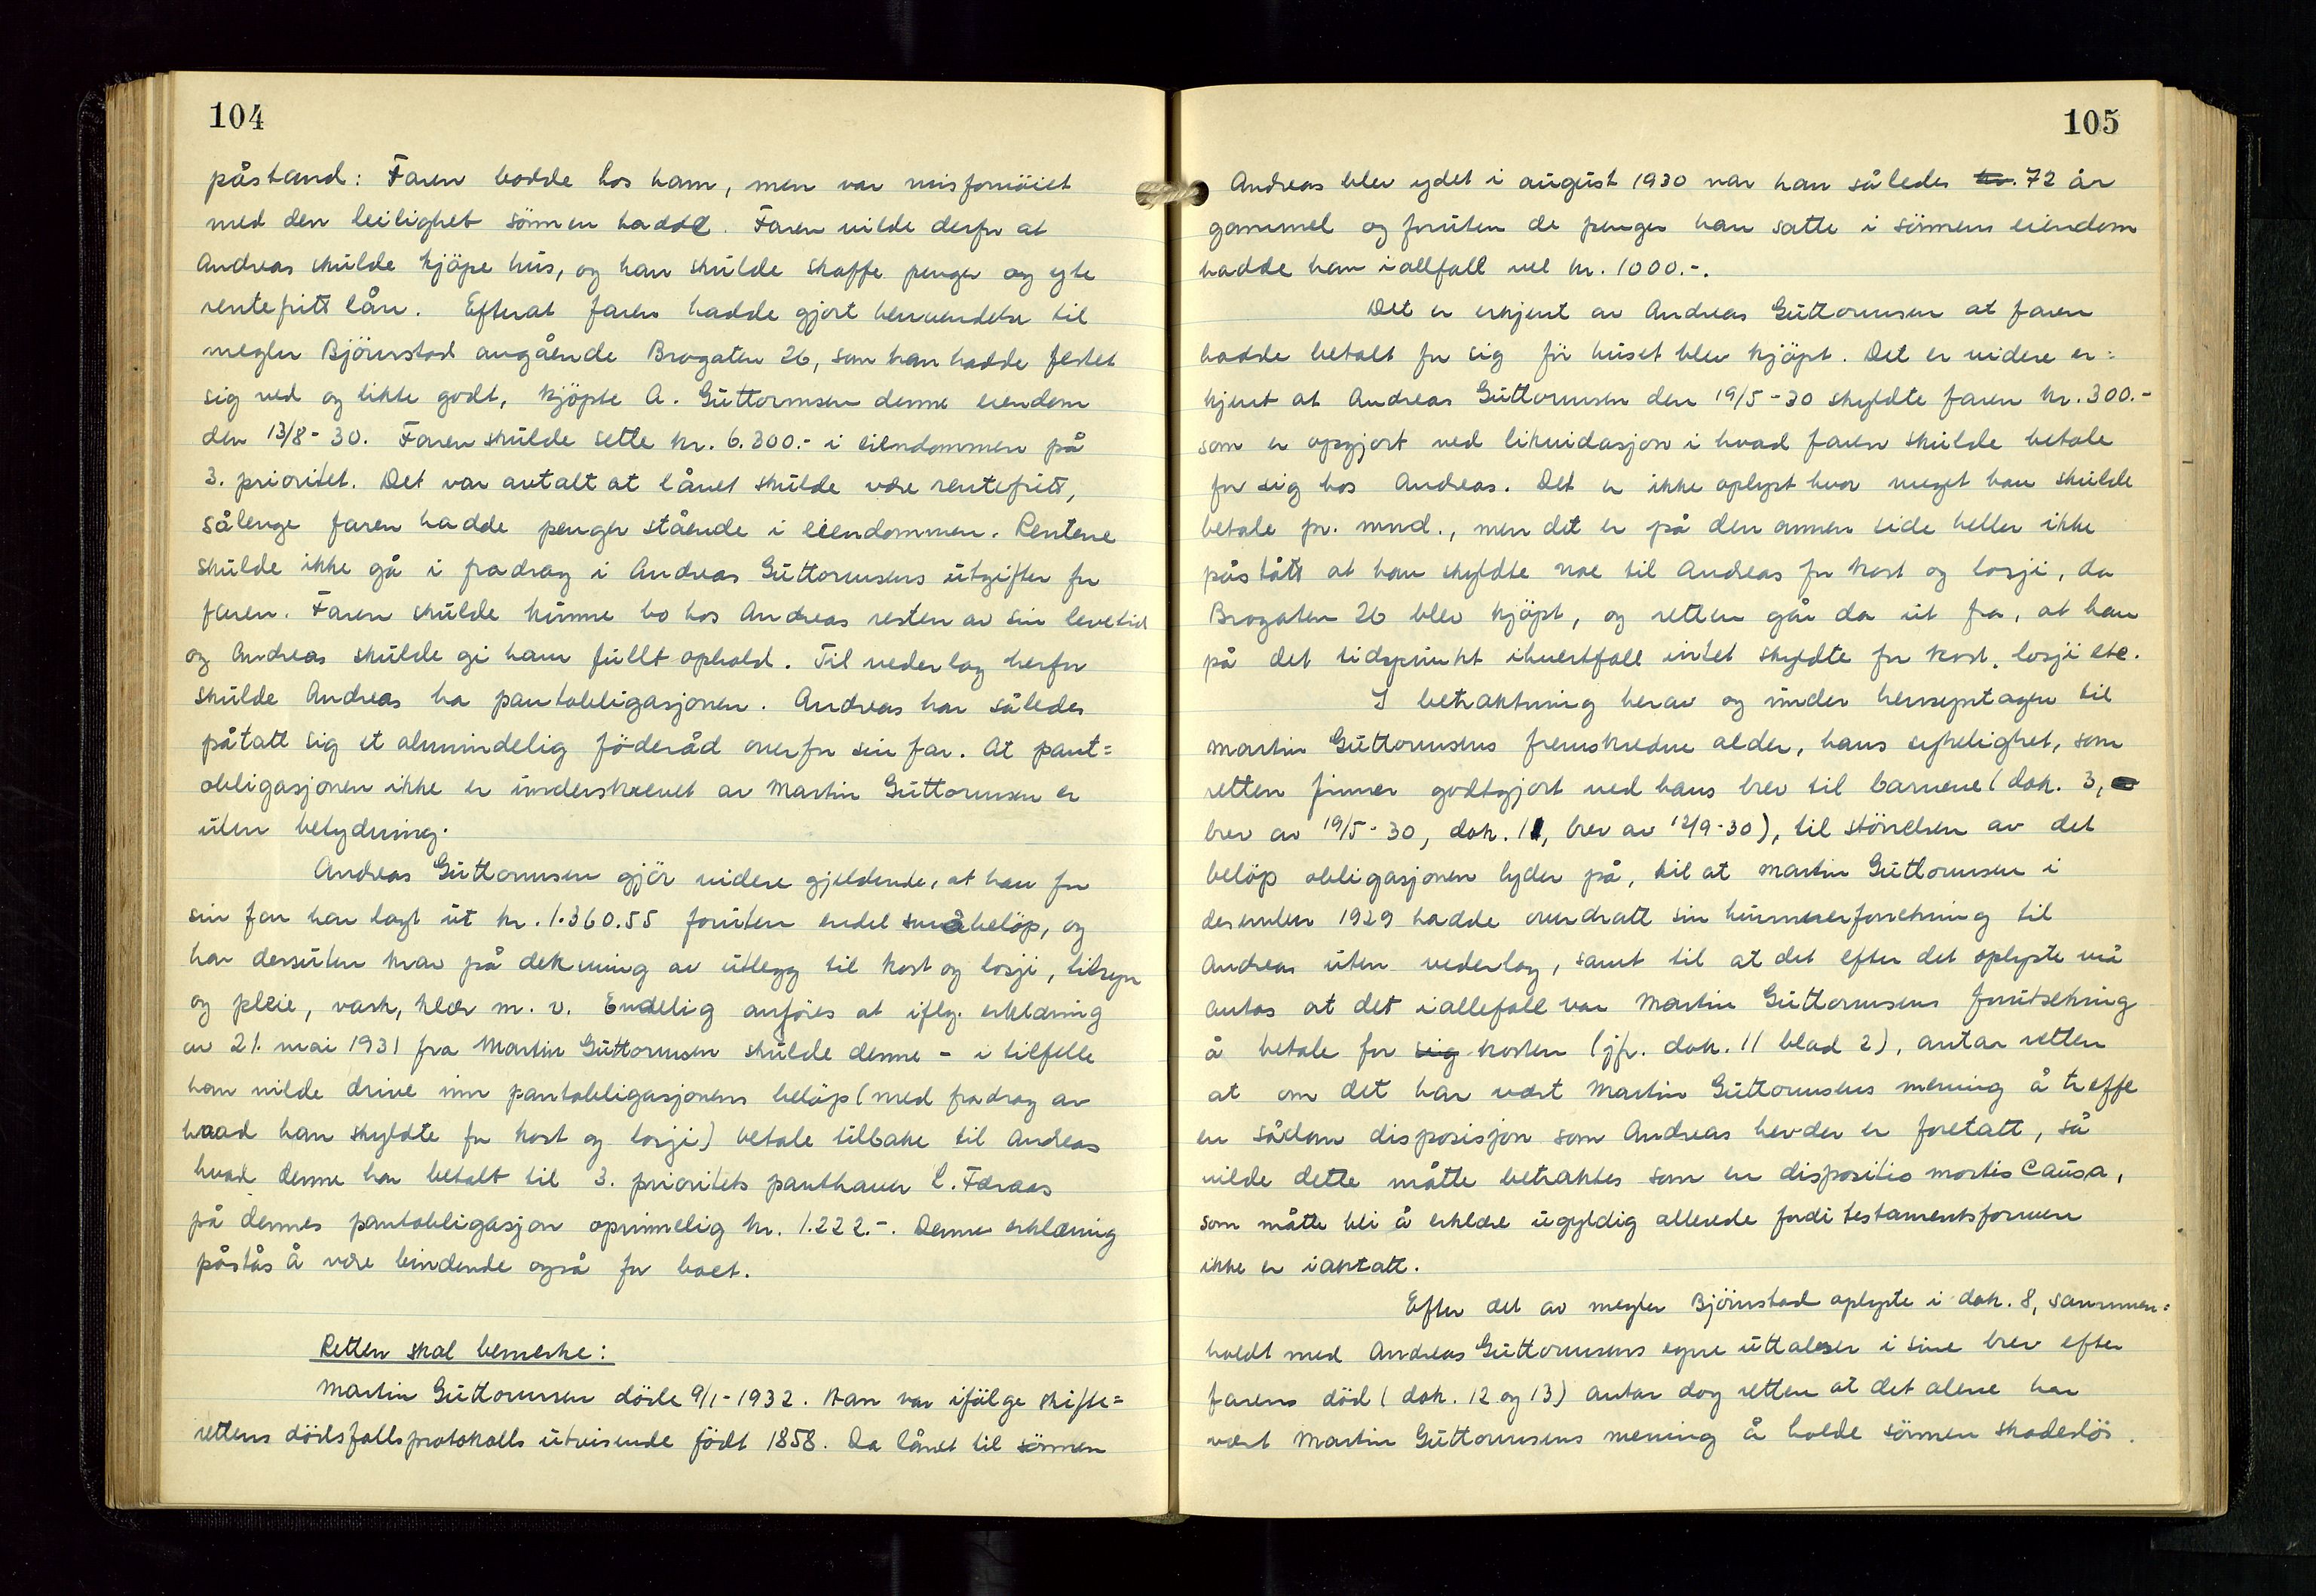 104
påstand: Faren bodde hos ham, men var misfornöiet
med den leilighet sönnen hadde. Faren vilde derfor at
Andreas skulde kjöpe hus, og han skulde skaffe penger og yte
rentefritt lån. Efterat faren hadde gjort henvendelse til
megler Björnstad angående Brogaten 26, som han hadde festet
sig ved og likte godt, kjöpte A. Guttormsen denne eiendom
den 13/8-30. Faren skulde sette kr. 6.300.- i eiendommen på
3. prioritet. Det var avtalt at lånet skulde være rentefritt,
sålenge faren hadde penger stående i eiendommen. Rentene
skulde ikke gå i fradrag i Andreas Guttormsens utgifter for
faren. Faren skulde kunne bo hos Andreas resten av sin levetid
og Andreas skulde gi ham fullt ophold. Til vederlag herfor
skulde Andreas ha pantobligasjonen. Andreas har således
påtatt sig et almindelig föderåd overfor sin far. At pant=
obligasjonen ikke er underskrevet av Martin Guttormsen er
uten betydning.
Andreas Guttormsen gjör videre gjeldende, at han for
sin far har lagt ut kr. 1.360.55 foruten endel småbelöp, og
har dessuten krav på dekning av utlegg til kost og losji, tilsyn
og pleie, vask, klær m. v. Endelig anföres at iflg. erklæring
av 21. mai 1931 fra Martin Guttormsen skulde denne - i tilfelle
han vilde drive inn pantobligasjonens belöp (med fradrag av
hvad han skyldte for kost og losji) betale tilbake til Andreas
hvad denne har betalt til 3. prioritets panthaver C. Færaas
på dennes pantobligasjon oprinnelig kr. 1.222.-. Denne erklæring
påstås å være bindende også for boet.
Retten skal bemerke:
Martin Guttormsen döde 9/1-1932. Han var ifölge skifte=
rettens dödsfallsprotokolls utvisende födt 1858. Da lånet til sönnen
105
Andreas blev ydet i august 1930 var han således kr. 72 år
gammel og foruten de penger han satte i sönnens eiendom
hadde han iallfall vel kr. 1000.-.
Det er erkjent av Andreas Guttormsen at faren
hadde betalt for sig för huset blev kjöpt. Det er videre er=
kjent at Andreas Guttormsen den 19/5-30 skyldte faren kr. 300.-
som er opgjort ved likvidasjon i hvad faren skulde betale
for sig hos Andreas. Det er ikke oplyst hvor meget han skulde
betale pr. mnd., men det er på den annen side heller ikke
påstått at han skyldte noe til Andreas for kost og losji, da
Brogaten 26 blev kjöpt, og retten går da ut fra, at han
på det tidspunkt ihvertfall intet skyldte for kost, losji etc.
I betraktning herav og under hensyntagen til
Martin Guttormsens fremskredne alder, hans sykelighet, som
retten finner godtgjort ved hans brev til barnene (dok. 3,
brev av 19/5-30, dok. 11, brev av 12/9-30), til störrelsen av det
belöp obligasjonen lyder på, til at Martin Guttormsen i
desember 1929 hadde overdratt sin hummerforretning til
Andreas uten vederlag, samt til at det efter det oplyste må
antas at det iallefall var Martin Guttormsens forutsetning
å betale for sig kosten (jfr. dok. 11 blad 2), antar retten
at om det har vært Martin Guttormsens mening å treffe
en sådan disposisjon som Andreas hevder er foretatt, så
vilde dette måtte betraktes som en dispositio mortis causa,
som måtte bli å erklære ugyldig allerede fordi testamentsformen
ikke er iakttatt.
Efter det av megler Björnstad oplyste i dok. 8, sammen=
holdt med Andreas Guttormsens egne uttalelser i sine brev efter
farens död (dok. 12 og 13) antar dog retten at det alene har
vært Martin Guttormsens mening å holde sönnen skadeslös.